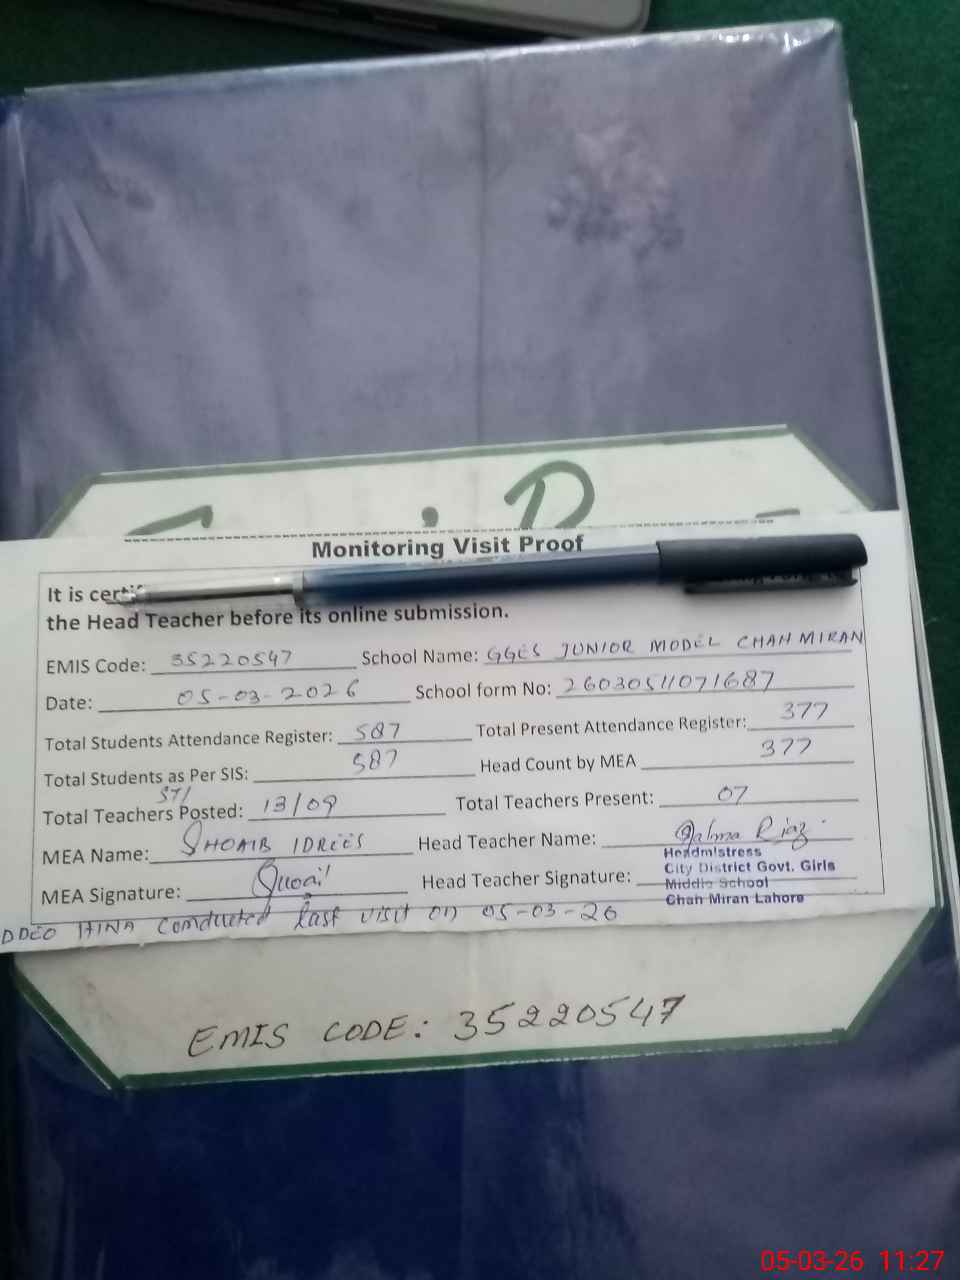 Monitoring Visit Proof
It is certif
the Head Teacher before its online submission.
EMIS Code: 35220547 School Name: GGES JUNIOR MODEL CHAH MIRAN
Date: 05-03-2026 School form No: 26030511071687
Total Students Attendance Register: 587 Total Present Attendance Register: 377
Total Students as Per SIS: 587 Head Count by MEA 377
STI
Total Teachers Posted: 13/09 Total Teachers Present: 07
MEA Name: SHOAIB IDREES Head Teacher Name: Salma Riaz
Headmistress
City District Govt. Girls
MEA Signature: Head Teacher Signature:
Middle School
Chah Miran Lahore
DDEO HINA conducted last visit on 05-03-26
EMIS CODE: 35220547
05-03-26 11:27